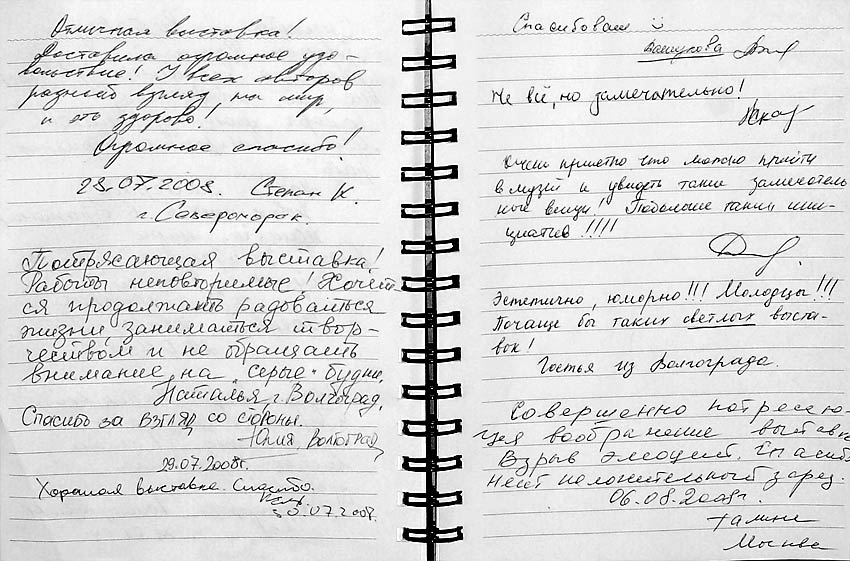 Отличная выставка!
Доставила огромное удо-
вольствие! У всех авторов
разный взгляд на мир,
и это здорово!
Огромное спасибо!
28.07.2008. Степан К.
г. Североморск.
Потрясающая выставка!
Работы неповторимые! Хочет-
ся продолжать радоваться
жизни, заниматься твор-
чеством и не обращать
внимание на "серые" будни.
Наталья, г. Волгоград.
Спасибо за взгляд со стороны.
Юлия, Волгоград
29.07.2008г.
Хорошая выставка. Спасибо.
30.07.2008г.
Спасибо вам
Не всё, но замечательно!
Очень приятно что можно прийти
в музей и увидеть такие замечатель
ные вещи! Побольше таких ини-
циатив!!!!
Эстетично, юморно!!! Молодцы!!!
Почаще бы таких светлых выста-
вок!
Гостья из Волгограда.
Совершенно потрясаю-
щая воображение выставка
Взрыв эмоций. Спасибо
Несёт положительный заряд.
06.08.2008г.
Галина
Москва